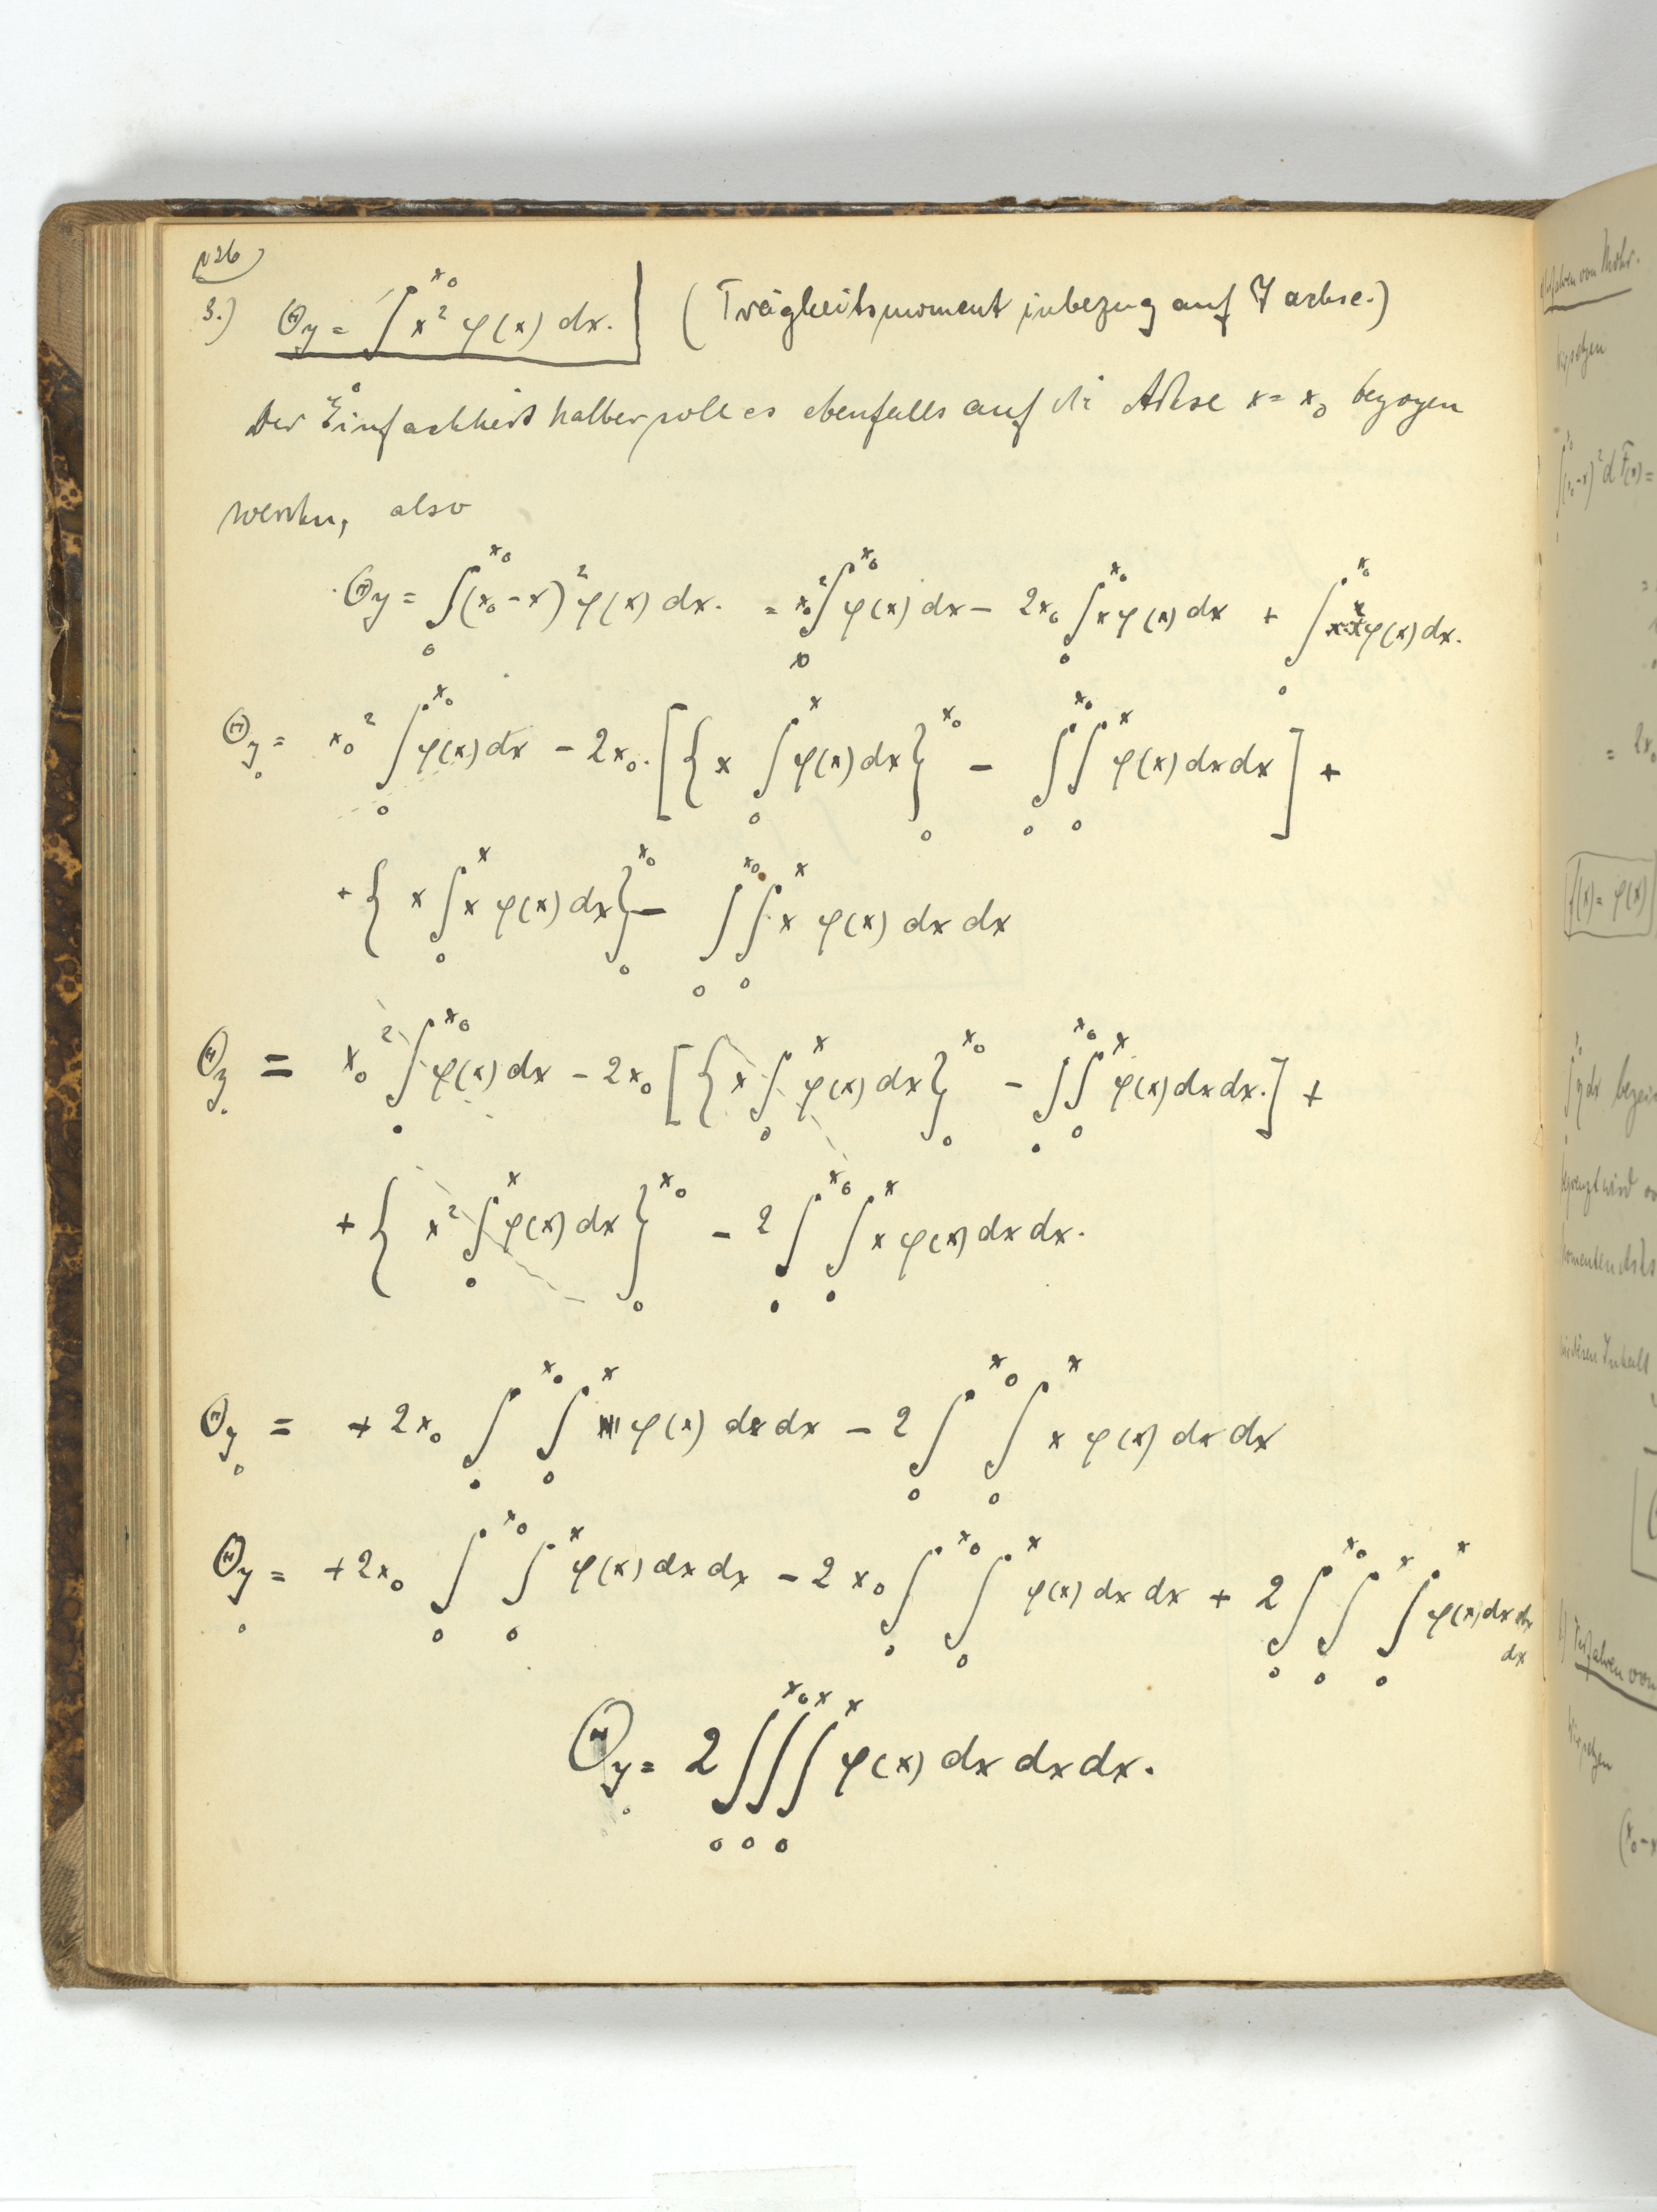 126
3.) Θy = ∫₀^x₀ x² φ(x) dx. (Trägheitsmoment inbezug auf Y achse.)
Der Einfachheit halber soll es ebenfalls auf die Achse x = x₀ bezogen
werden, also
Θy = ∫₀^x₀ (x₀ - x)² φ(x) dx. = x₀² ∫₀^x₀ φ(x) dx - 2x₀ ∫₀^x₀ x φ(x) dx + ∫₀^x₀ x·x φ(x) dx.
Θy₀ = x₀² ∫₀^x₀ φ(x) dx - 2x₀.[{x ∫₀^x φ(x) dx}₀^x₀ - ∫₀^x₀ ∫₀^x φ(x) dx dx] +
+ {x ∫₀^x x φ(x) dx}₀^x₀ - ∫₀^x₀ ∫₀^x x φ(x) dx dx
Θy₀ = x₀² ∫₀^x₀ φ(x) dx - 2x₀ [{x ∫₀^x φ(x) dx}₀^x₀ - ∫₀^x₀ ∫₀^x φ(x) dx dx.] +
+ {x² ∫₀^x φ(x) dx}₀^x₀ - 2 ∫₀^x₀ ∫₀^x x φ(x) dx dx.
Θy₀ = + 2x₀ ∫₀^x₀ ∫₀^x φ(x) dx dx - 2 ∫₀^x₀ ∫₀^x x φ(x) dx dx
Θy₀ = +2x₀ ∫₀^x₀ ∫₀^x φ(x) dx dx - 2x₀ ∫₀^x₀ ∫₀^x φ(x) dx dx + 2 ∫₀^x₀ ∫₀^x ∫₀^x φ(x) dx dx
dx
Θy₀ = 2 ∫₀^x₀ ∫₀^x ∫₀^x φ(x) dx dx dx.